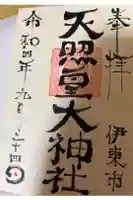 奉拝
伊東市
天照皇大神社
令和四年九月二十四